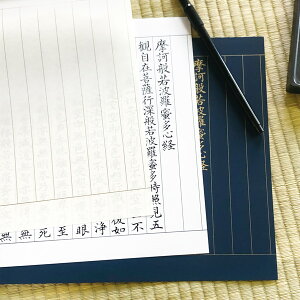 摩訶般若波羅蜜多心経
摩訶般若波羅蜜多心経
観自在菩薩行深般若波羅蜜多時照見五
不
復如
浄
眼
至
死
無
無